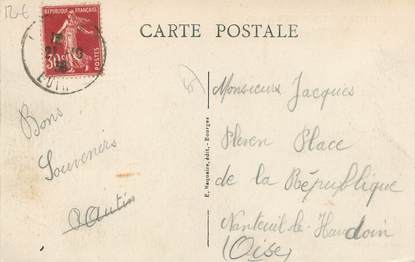 12€
CARTE POSTALE
REPUBLIQUE FRANÇAISE
30c
POSTES
Monsieur Jacques
Pleven Place
de la République
Nanteuil-le-Haudoin
(Oise)
Bons
Souvenirs
E. Maquaire, édit. - Bourges